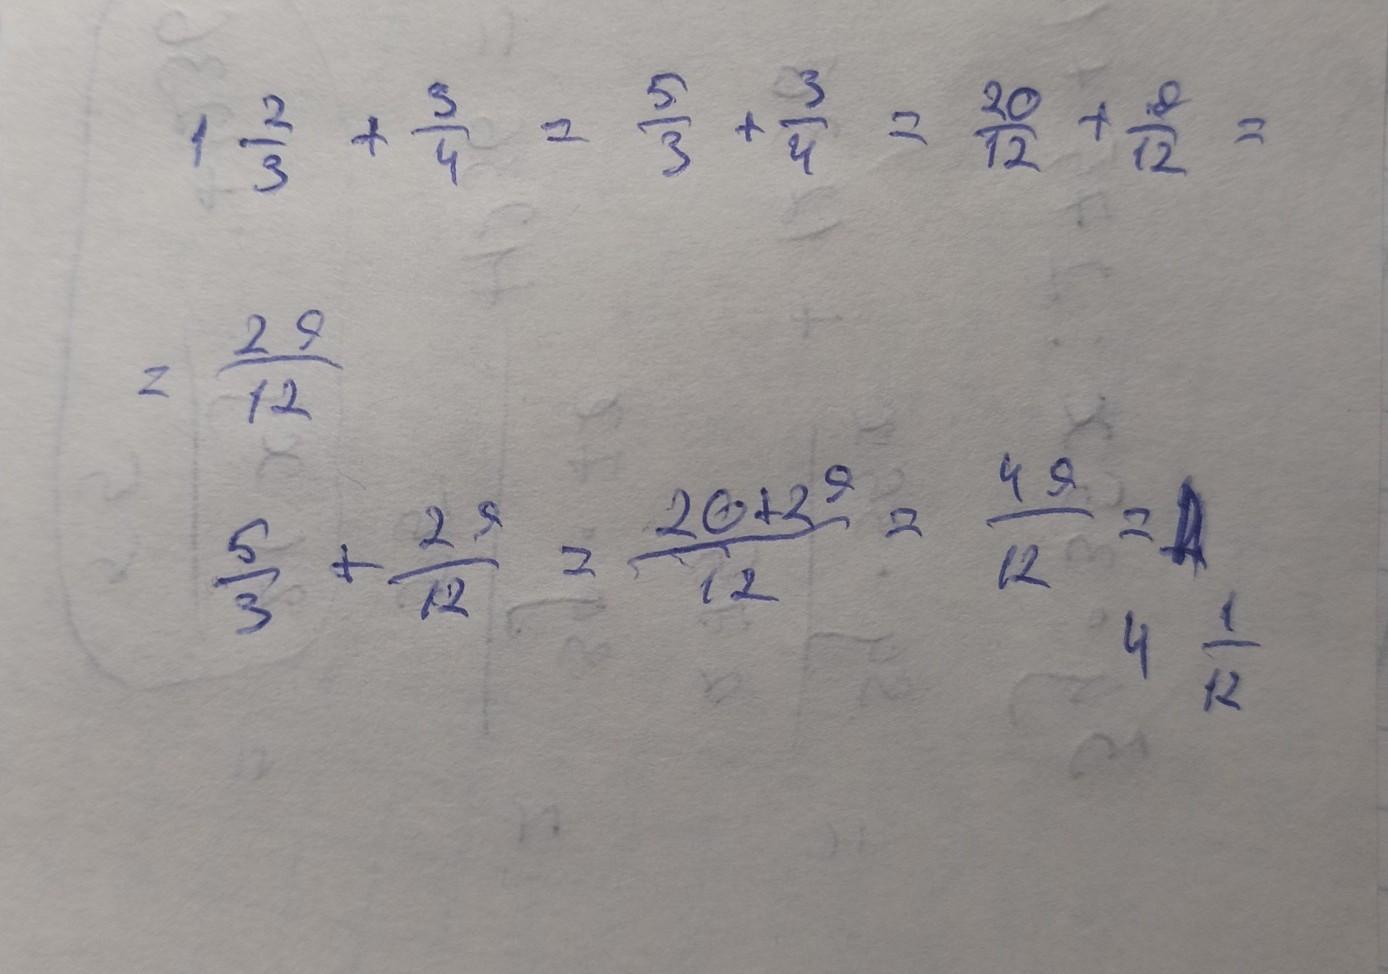 1 2/3 + 3/4 = 5/3 + 3/4 = 20/12 + 9/12 =
= 29/12
5/3 + 29/12 = 20+29/12 = 49/12 =
4 1/12